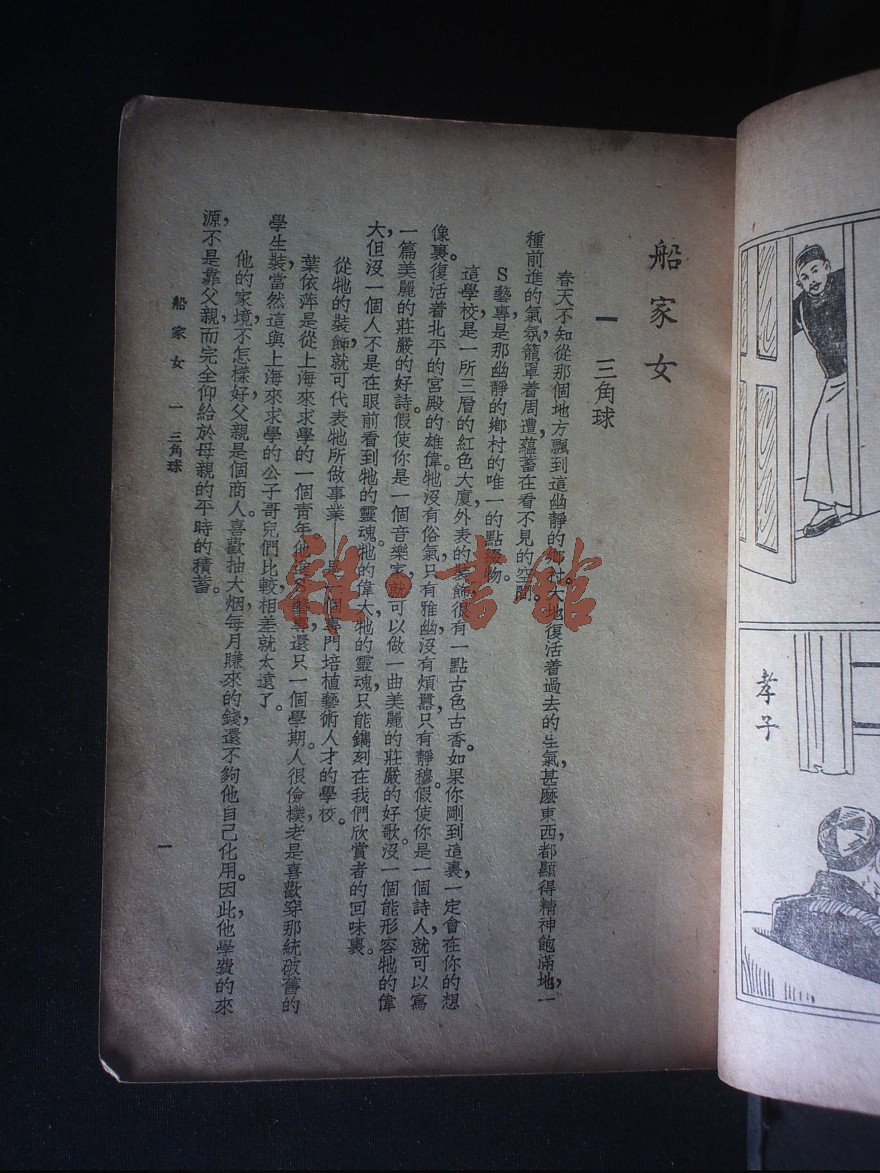 船家女
一 三角球
春天不知從那個地方飄到這幽靜的鄉村。大地復活着過去的生氣，甚麼東西，都顯得精神飽滿地，一
種前進的氣氛，籠罩着周遭，蘊蓄在看不見的空間。
S藝專，是那幽靜的鄉村的唯一的點綴物。
這學校，是一所三層的紅色大廈，外表的裝飾，很有一點古色古香。如果你剛到這裏，一定會在你的想
像裏。復活着北平的宮殿的雄偉。牠沒有俗氣，只有雅幽，沒有煩囂，只有靜穆。假使你是一個詩人，就可以寫
一篇美麗的莊嚴的好詩，假使你是一個音樂家，就可以做一曲美麗的莊嚴的好歌。沒一個能形容牠的偉
大，但沒一個人不是在眼前看到牠的靈魂。牠的偉大，牠的靈魂，只能鐫刻在我們欣賞者的回味裏。
從牠的裝飾，就可代表牠所做事業——是一個專門培植藝術人才的學校。
葉依萍是從上海來求學的一個青年，他進S藝專，還只一個學期。人很儉樸，老是喜歡穿那統破舊的
學生裝，當然這與上海來求學的公子哥兒們比較，相差就太遠了。
他的家境，不怎樣好，父親是個商人。喜歡抽大烟，每月賺來的錢，還不夠他自己化用。因此，他學費的來
源，不是靠父親，而完全仰給於母親的平時的積蓄。
船家女 一 三角球
一
孝子
雜·書館